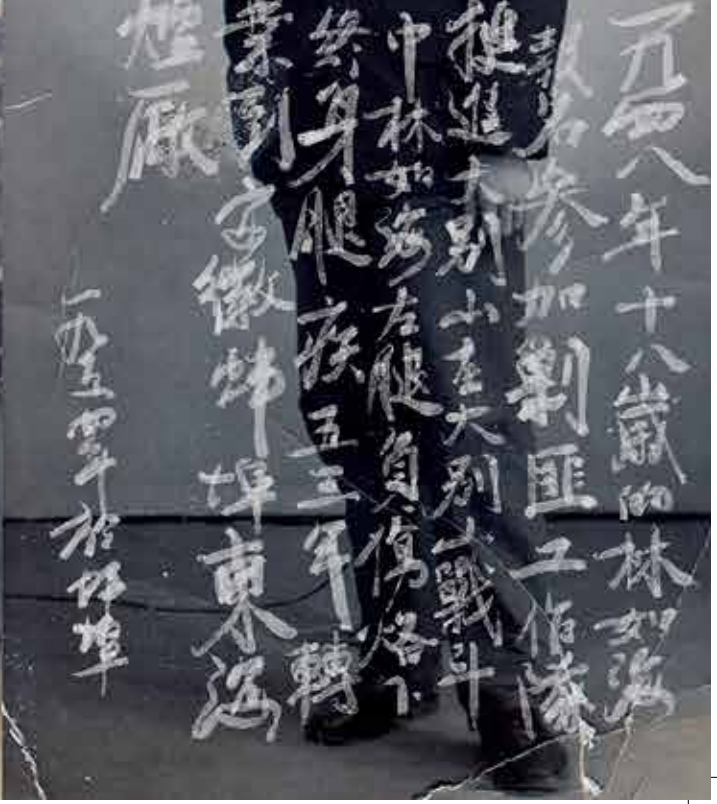 一九四八年十八歲的林如海
報名參加剿匪工作隊
挺進大別山在大別山戰斗
中林如海左腿負傷烙下
終身腿疾五三年轉
業到安徽蚌埠東海
煙廠
一九五四年於蚌埠